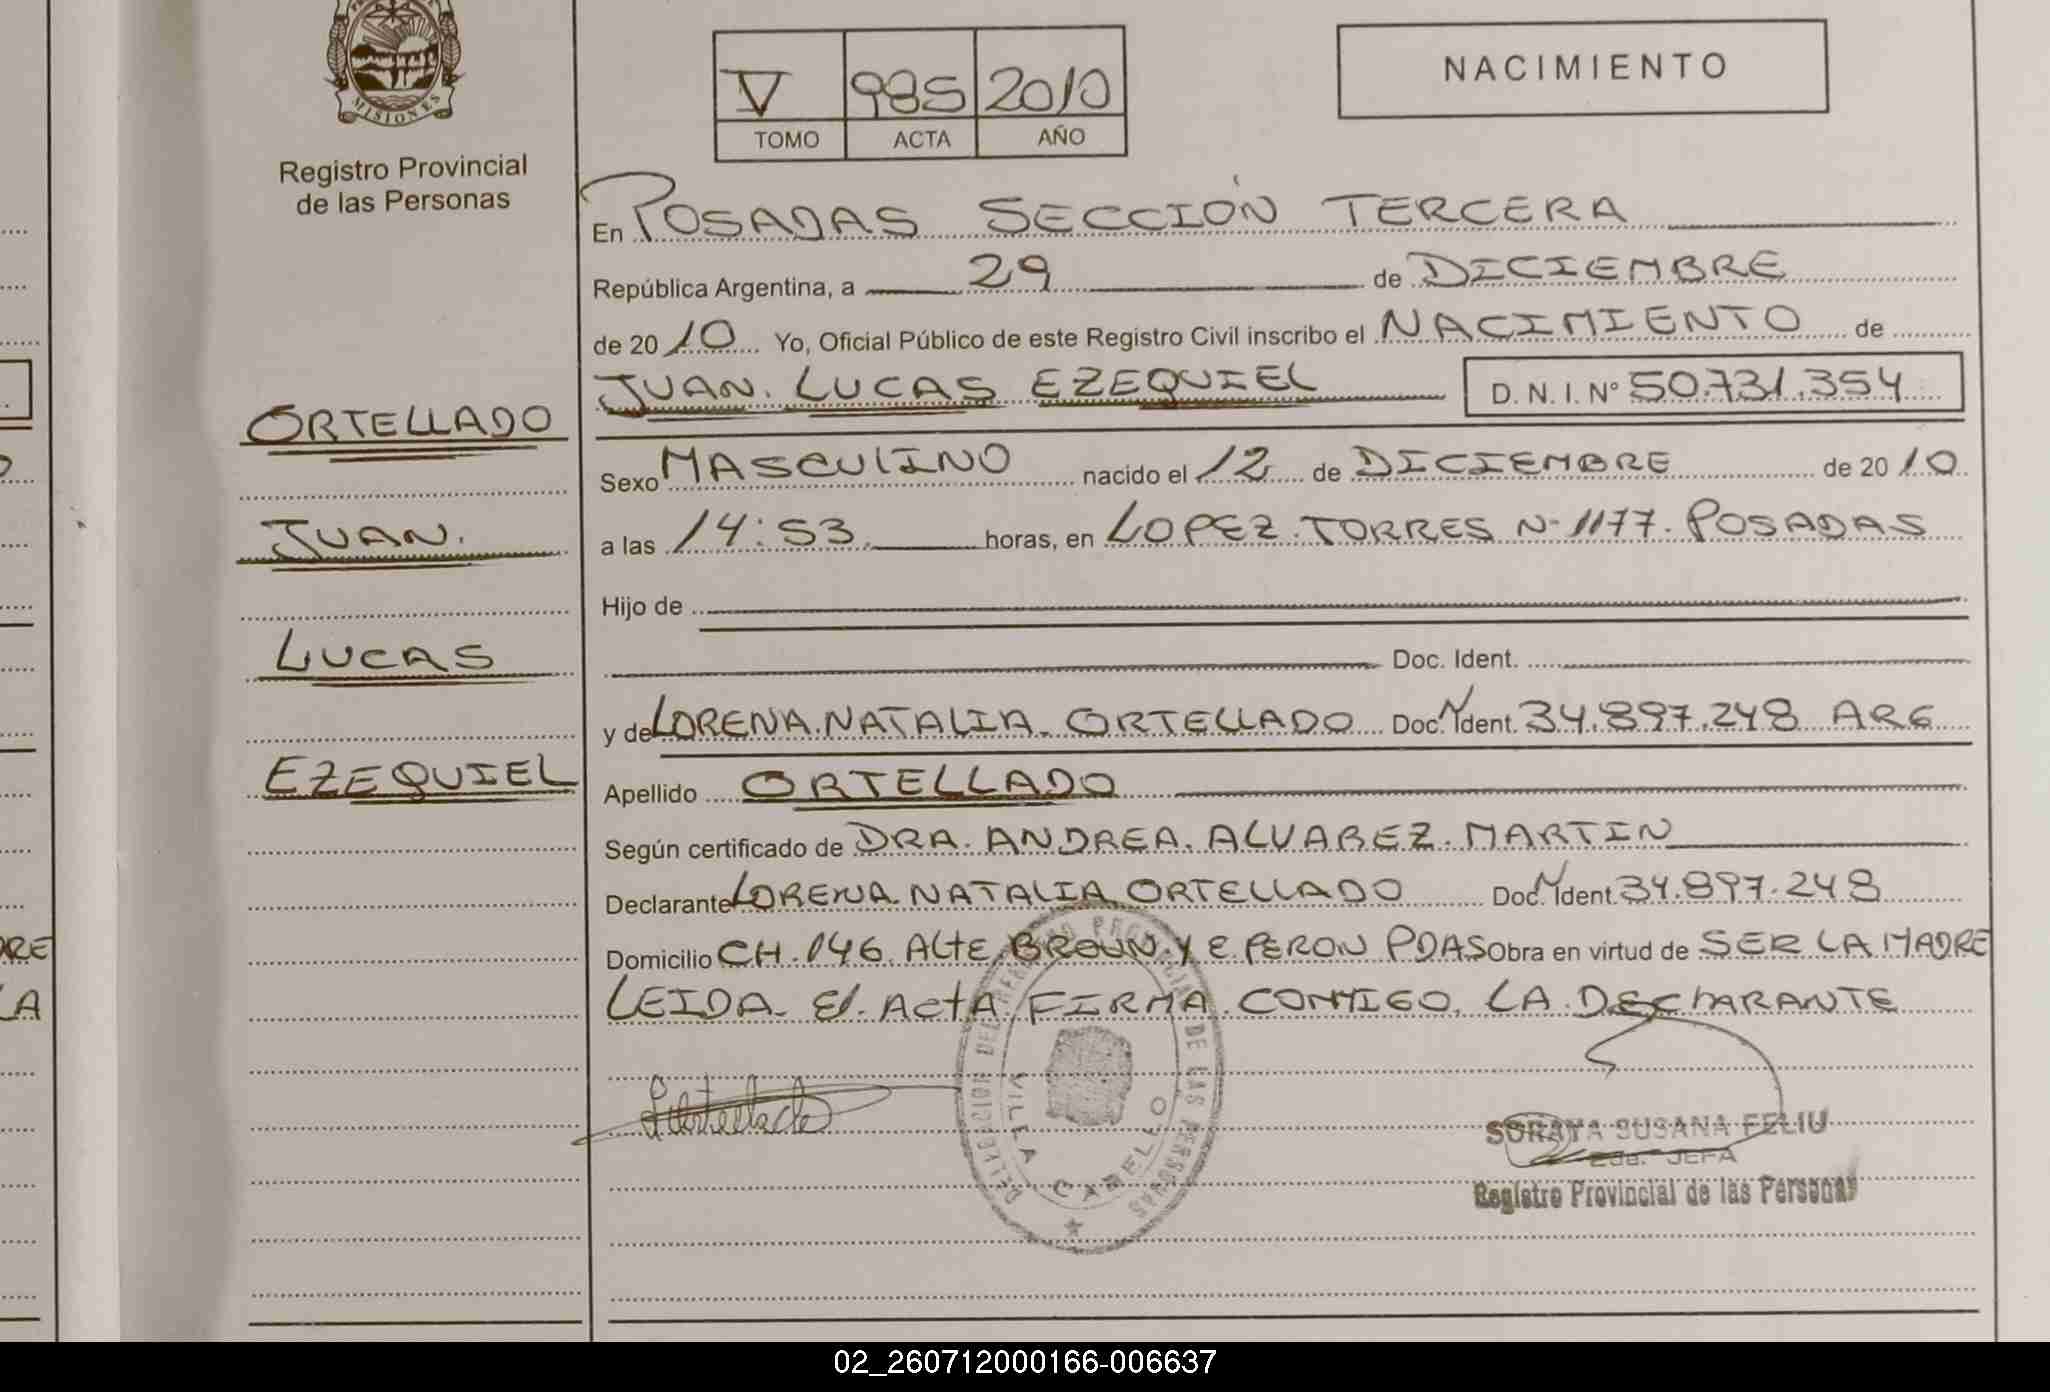 MISIONES
Registro Provincial
de las Personas
ORTELLADO
JUAN.
LUCAS
EZEQUIEL
V 985 2010
TOMO ACTA AÑO
NACIMIENTO
En POSADAS SECCIÓN TERCERA
República Argentina, a 29 de DICIEMBRE
de 2010 Yo, Oficial Público de este Registro Civil inscribo el NACIMIENTO de
JUAN. LUCAS EZEQUIEL D. N. I. N° 50.731.354
Sexo MASCULINO nacido el 12 de DICIEMBRE de 2010
a las 14:53. horas, en LOPEZ. TORRES N- 1177. POSADAS
Hijo de
Doc. Ident.
y de LORENA. NATALIA. ORTELLADO Doc. N Ident. 34.897.248 ARG
Apellido ORTELLADO
Según certificado de DRA. ANDREA. ALVAREZ. MARTIN
Declarante LORENA NATALIA ORTELLADO Doc. N Ident. 34.897.248
Domicilio CH. 146. Alte BROWN. Y E. PERON PDAS Obra en virtud de SER LA MADRE
LEIDA. El. ActA. FIRMA. CONMIGO. LA. DECLARANTE
DELEGACION DEL REGISTRO PROVINCIAL DE LAS PERSONAS
VILLA CABELLO
SORAYA SUSANA FELIU
JEFA
Registro Provincial de las Personas
02_260712000166-006637